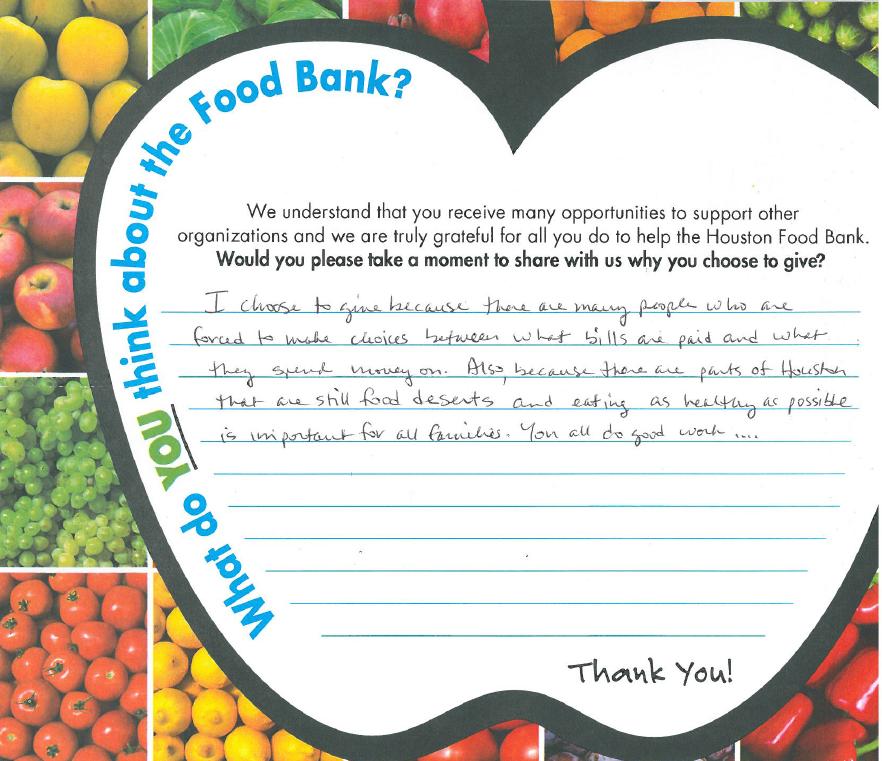 What do YOU think about the Food Bank?
We understand that you receive many opportunities to support other
organizations and we are truly grateful for all you do to help the Houston Food Bank.
Would you please take a moment to share with us why you choose to give?
I choose to give because there are many people who are
forced to make choices between what bills are paid and what
they spend money on. Also, because there are parts of Houston
that are still food deserts and eating as healthy as possible
is important for all families. You all do good work ....
Thank You!